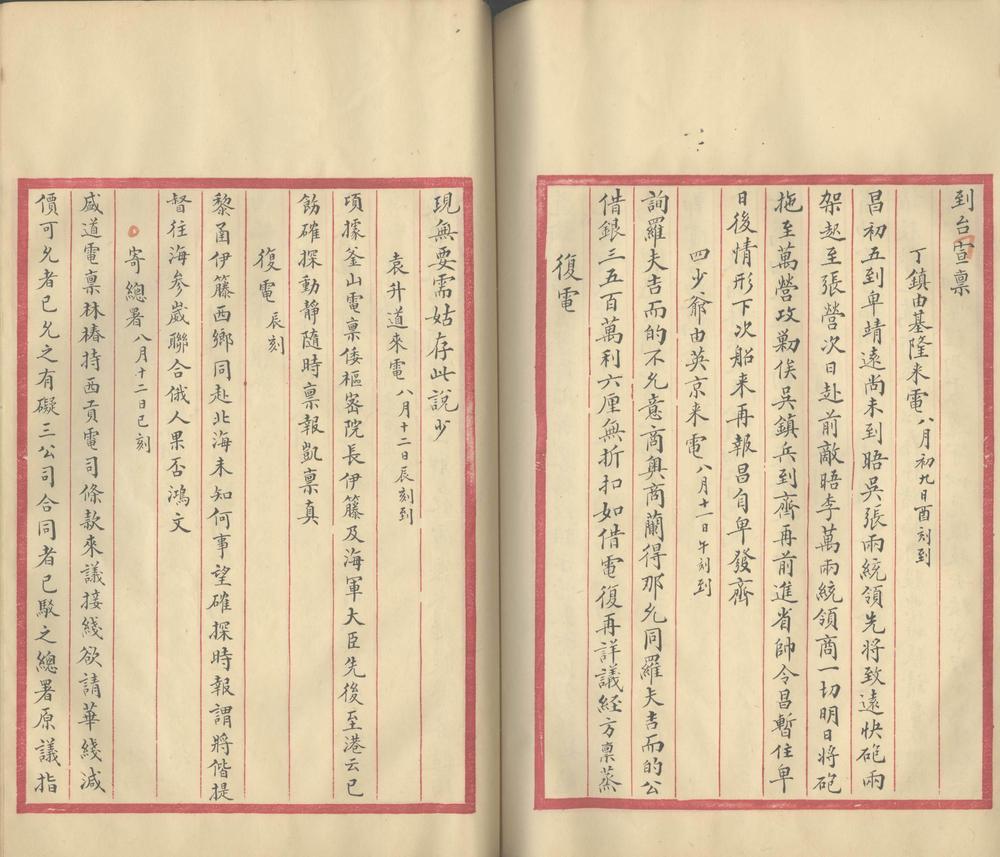 到台宣稟
丁鎮由基隆来電八月初九日酉刻到
昌初五到卑靖遠尚未到晤吳張兩統領先将致遠快砲兩
架起至張營次日赴前敵晤李萬兩統領商一切明日将砲
拖至萬營攻勦俟吳鎮兵到齊再前進省帥令昌暫住卑
日後情形下次船来再報昌自卑發齊
四少爺由英京来電八月十一日午刻到
詢羅夫吉而的不允意商奥商蘭得那允同羅夫吉而的公
借銀三五百萬利六厘無折扣如借電復再詳議経方稟蒸
復電
現無要需姑存此說少
袁升道来電八月十二日辰刻到
頃據釜山電稟倭樞密院長伊藤及海軍大臣先後至港云已
飭確探動静隨時稟報凱稟真
復電辰刻
黎函伊藤西鄉同赴北海未知何事望確探時報謂將偕提
督往海参崴聯合俄人果否鴻文
寄總署八月十二日巳刻
盛道電稟林椿持西貢電司條款來議接綫欲請華綫減
價可允者已允之有礙三公司合同者已駁之總署原議指